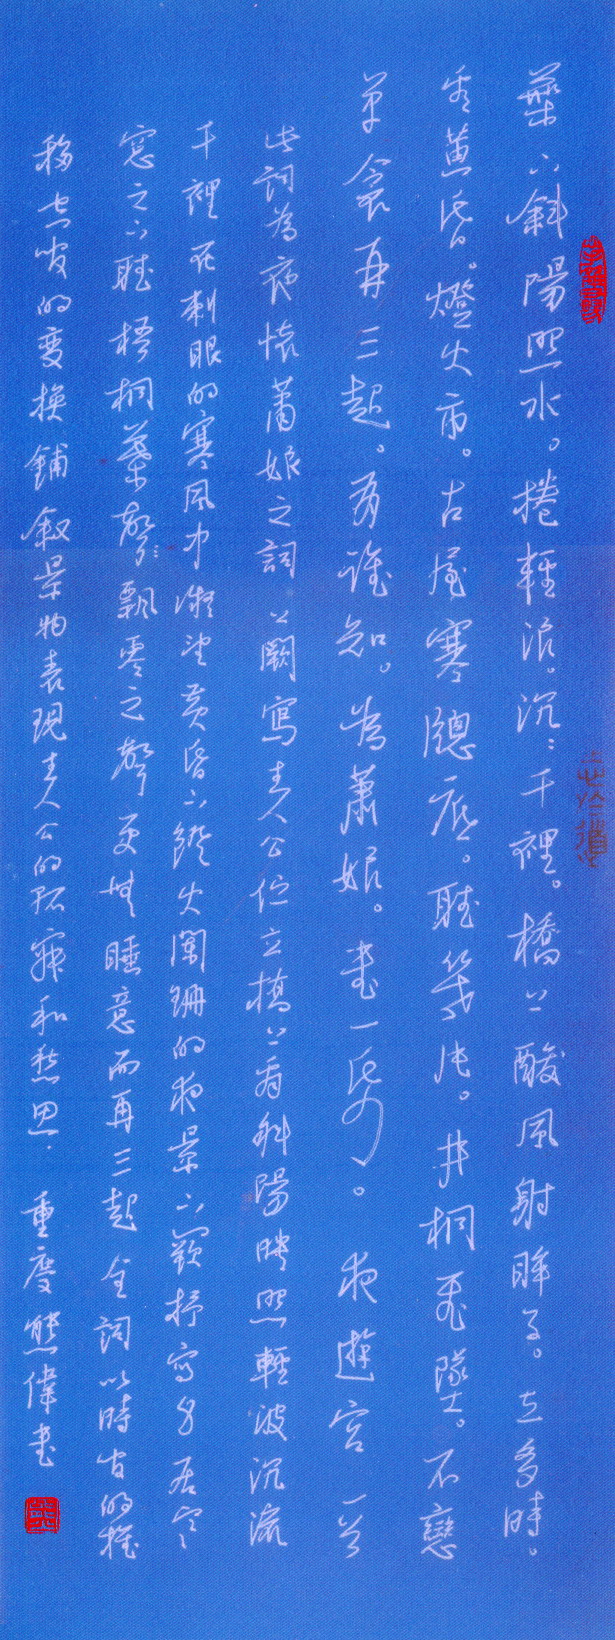 葉下斜陽照水。捲輕浪。沉沉千裡。橋上酸風射眸子。立多時。
看黃昏。燈火市。古屋寒窗底。聽幾片。井桐飛墜。不戀
單衾再三起。有誰知。為蕭娘。書一紙。夜遊宮一首
此詞為夜懷蕭娘之詞上闋寫主人公佇立橋上看斜陽映照輕波沉流
千裡在刺眼的寒風中凝望黃昏下燈火闌珊的夜景下闋抒寫身居寒
窗之下聽梧桐葉聲聲飄零之聲更無睡意而再三起全詞以時间的推
移空间的变換鋪叙景物表現主人公的孤寂和愁思. 重慶熊偉書